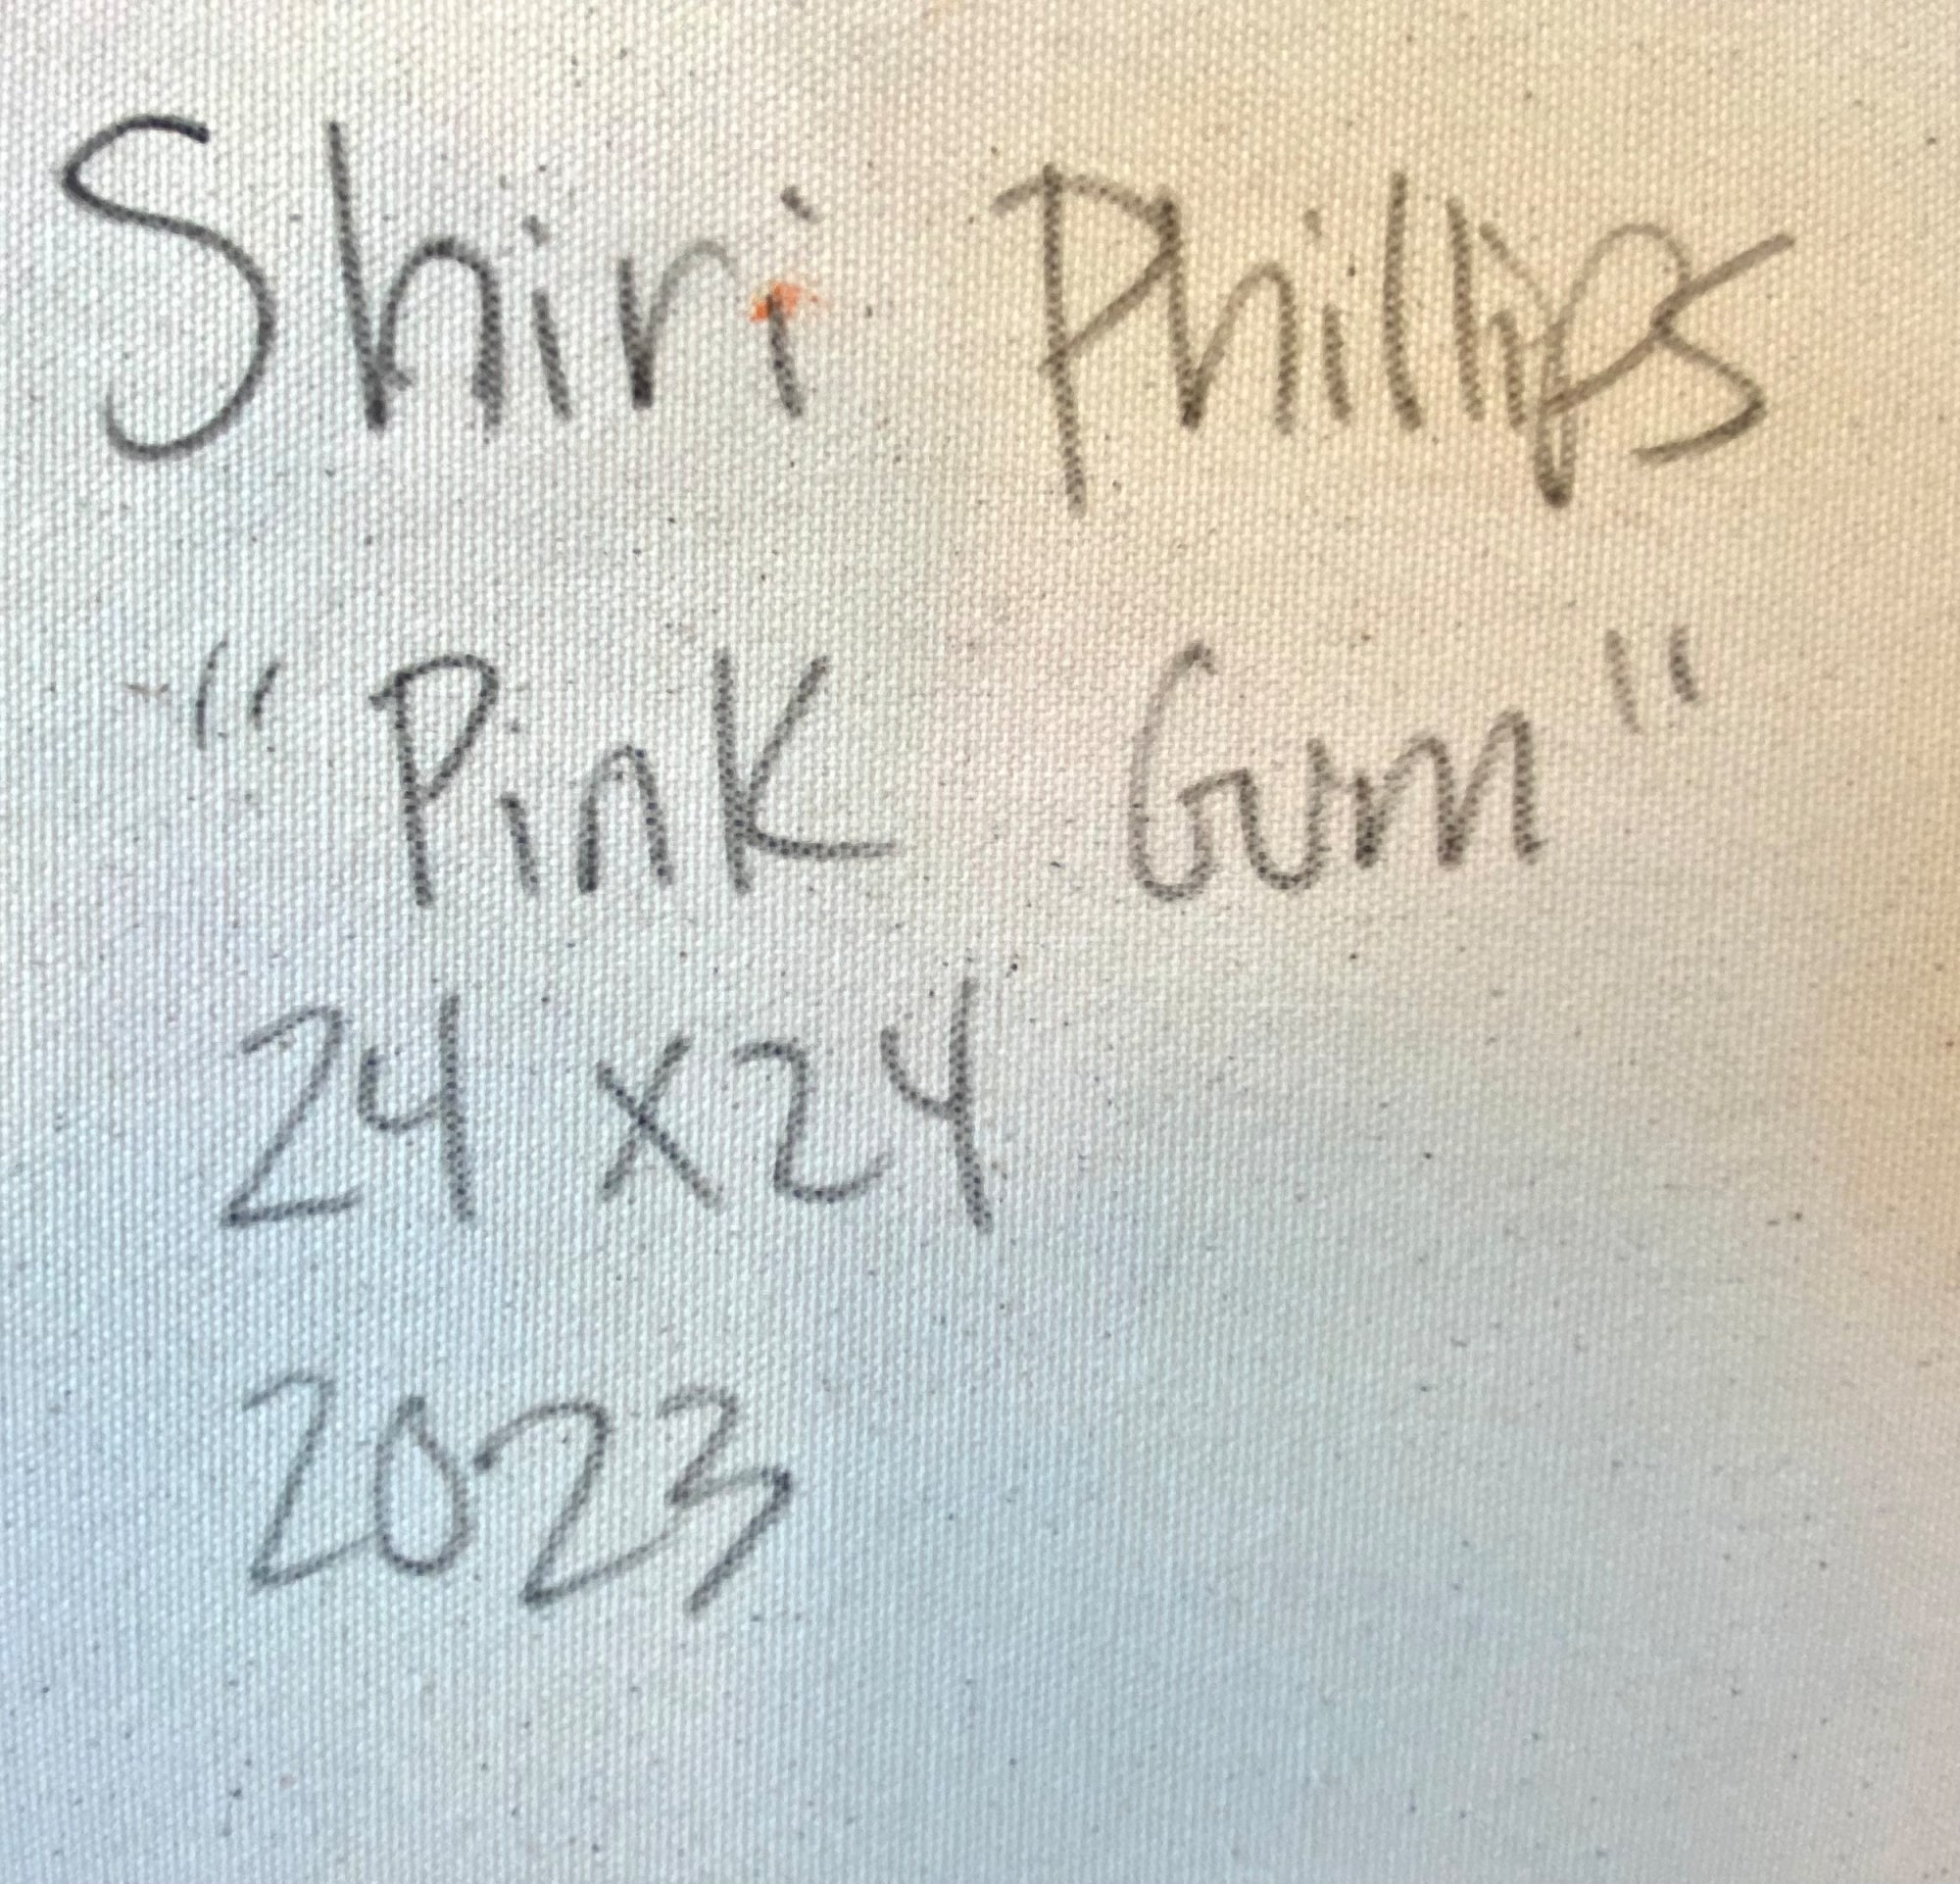 Shiri Phillips
"Pink Gum"
24 x 24
2023